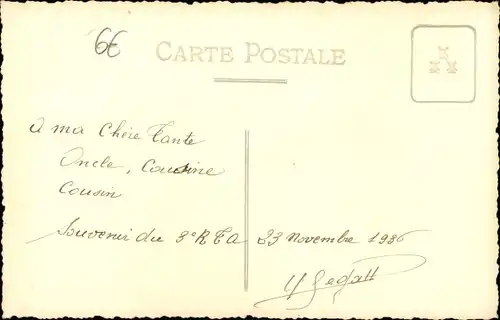 6€
CARTE POSTALE
A ma Chère Tante
Oncle, Cousine
Cousin
Souvenir du 8e R T A 23 Novembre 1936